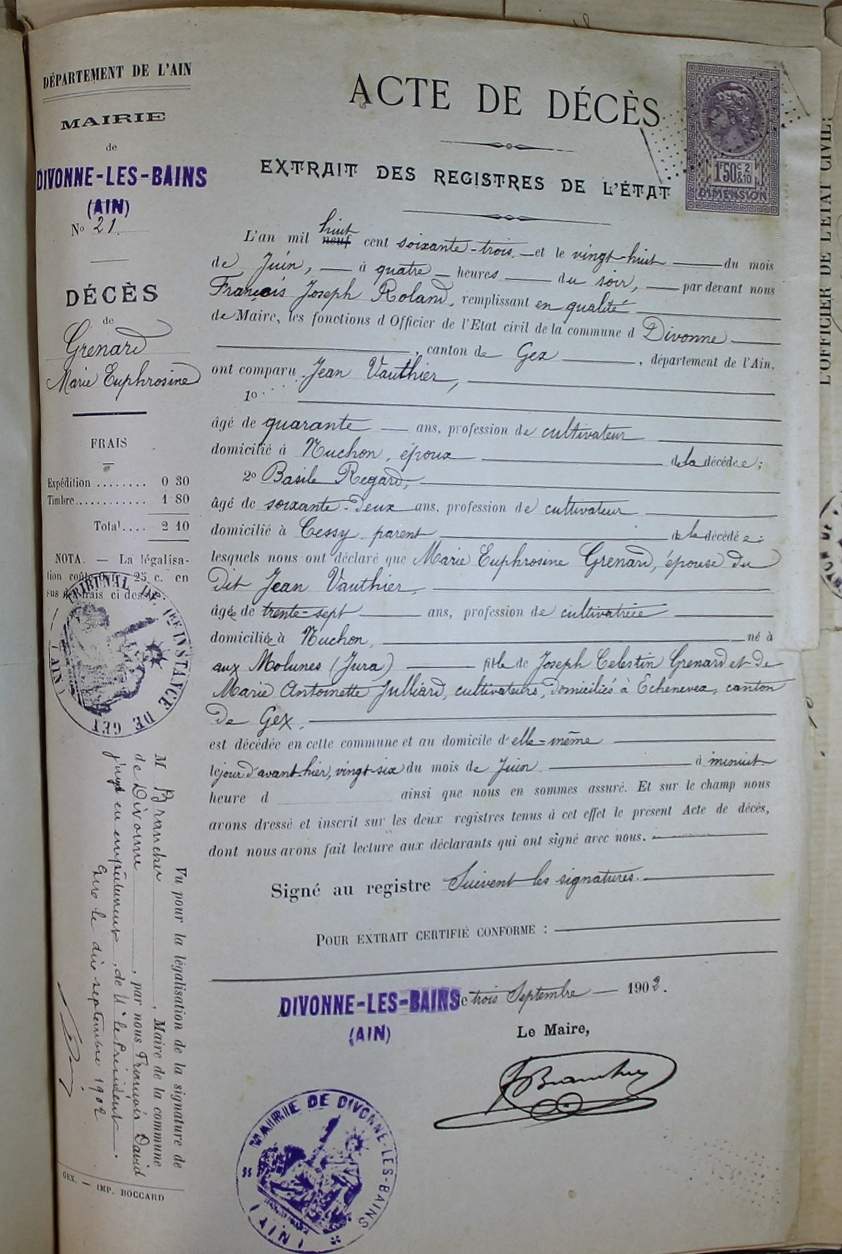 DÉPARTEMENT DE L'AIN
MAIRIE
de
DIVONNE-LES-BAINS
(AIN)
No 21
DÉCÈS
de
Grenard
Marie Euphrosine
FRAIS
Expédition ........ 0 30
Timbre............ 1 80
Total.... 2 10
NOTA. — La légalisa-
tion 25 c. en
sus frais ci des
TRIBUNAL DE 1ère INSTANCE DE GEX (AIN)
ACTE DE DÉCÈS
1f50c 2/10
DIMENSION
EXTRAIT DES REGISTRES DE L'ÉTAT
L'an mil huit neuf cent soixante-trois, et le vingt-huit du mois
de Juin, à quatre heures du soir, par devant nous
François Joseph Roland, remplissant en qualité
de Maire, les fonctions d'Officier de l'Etat civil de la commune d Divonne
, canton de Gex, département de l'Ain,
ont comparu Jean Vauthier,
1o
âgé de quarante ans, profession de cultivateur
domicilié à Huchon, époux de la décédée;
2o Basile Regard,
âgé de soixante-deux ans, profession de cultivateur
domicilié à Cessy parent de la décédée:
lesquels nous ont déclaré que Marie Euphrosine Grenard, épouse du
dit Jean Vauthier,
âgée de trente-sept ans, profession de cultivatrice
domiciliée à Huchon, né à
aux Molunes (Jura) fille de Joseph Celestin Grenard et de
Marie Antoinette Julliard, cultivateurs, domiciliés à Echenevex, canton
de Gex,
est décédée en cette commune et au domicile d'elle-même
le jour d'avant hier, vingt-six du mois de Juin à minuit
heure d ainsi que nous en sommes assuré. Et sur le champ nous
avons dressé et inscrit sur les deux registres tenus à cet effet le présent Acte de décès,
dont nous avons fait lecture aux déclarants qui ont signé avec nous.
Signé au registre Suivent les signatures.
POUR EXTRAIT CERTIFIÉ CONFORME :
DIVONNE-LES-BAINS le trois Septembre 1902.
(AIN)
Le Maire,
MAIRIE DE DIVONNE-LES-BAINS (AIN)
Vu pour la légalisation de la signature de
M Brancher, Maire de la commune
de Divonne, par nous François David
juge en empêchement de M. le Président.
Gex le dix septembre 1902
GEX. — IMP. BOCCARD
L'OFFICIER DE L'ÉTAT CIVIL: